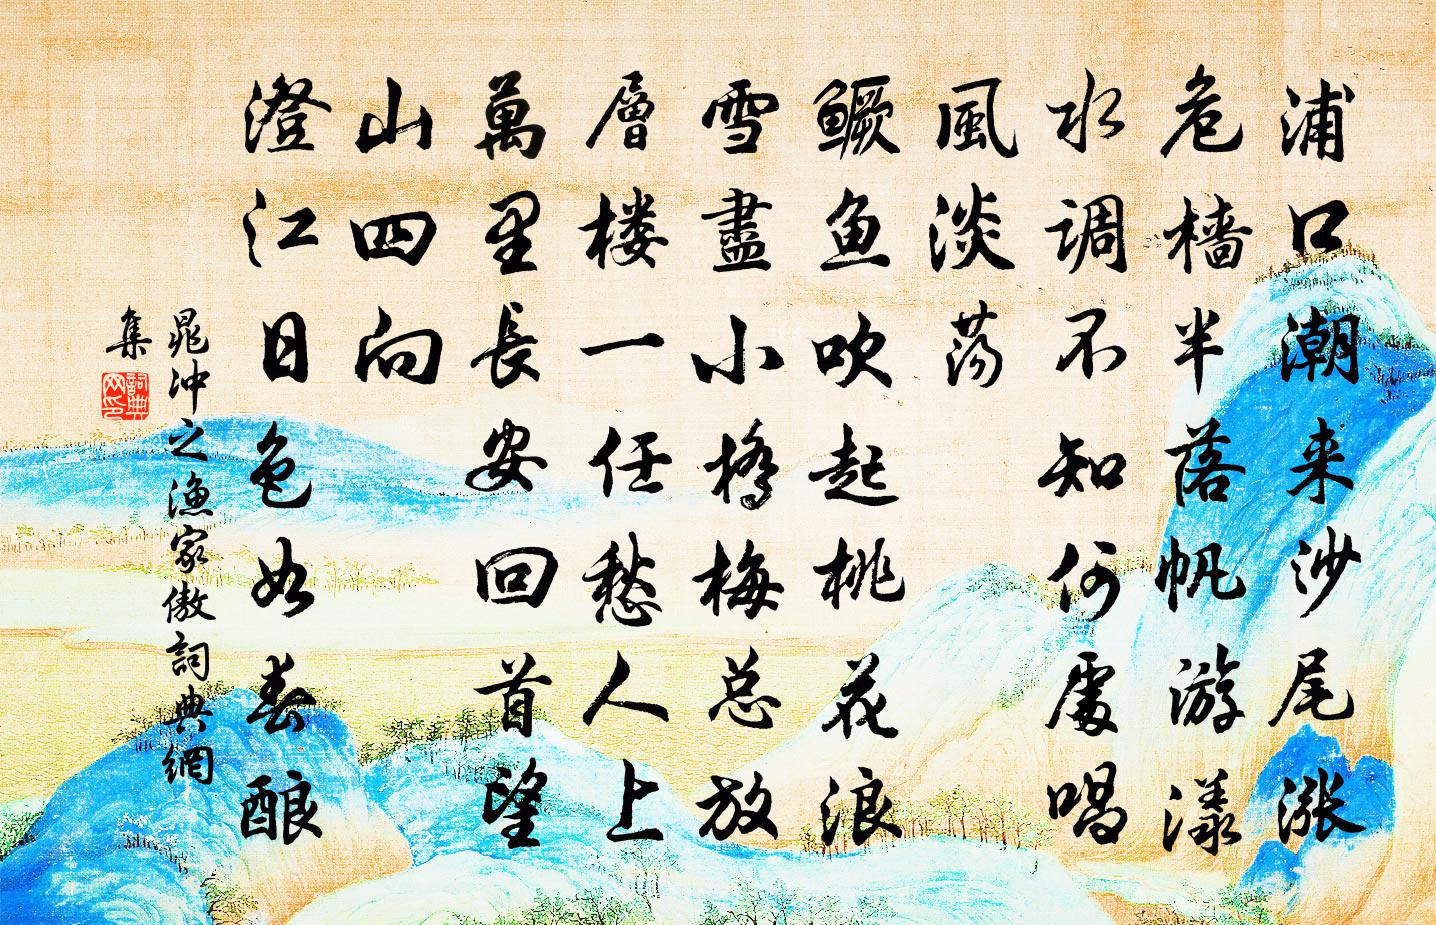 浦口潮来沙尾漲
危樯半落帆游漾
水调不知何處唱
風淡荡
鳜鱼吹起桃花浪
雪盡小橋梅总放
層楼一任愁人上
萬里長安回首望
山四向
澄江日色如春酿
晁冲之漁家傲詞典網
集
詞典網印